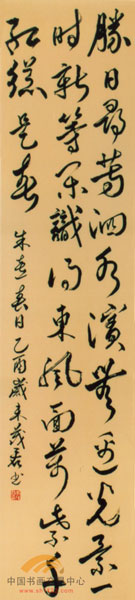 勝日尋芳泗水濱無邊光景一
時新等閒識得東風面萬紫千
紅總是春
朱熹春日乙酉歲末茂书
中国书画交易中心